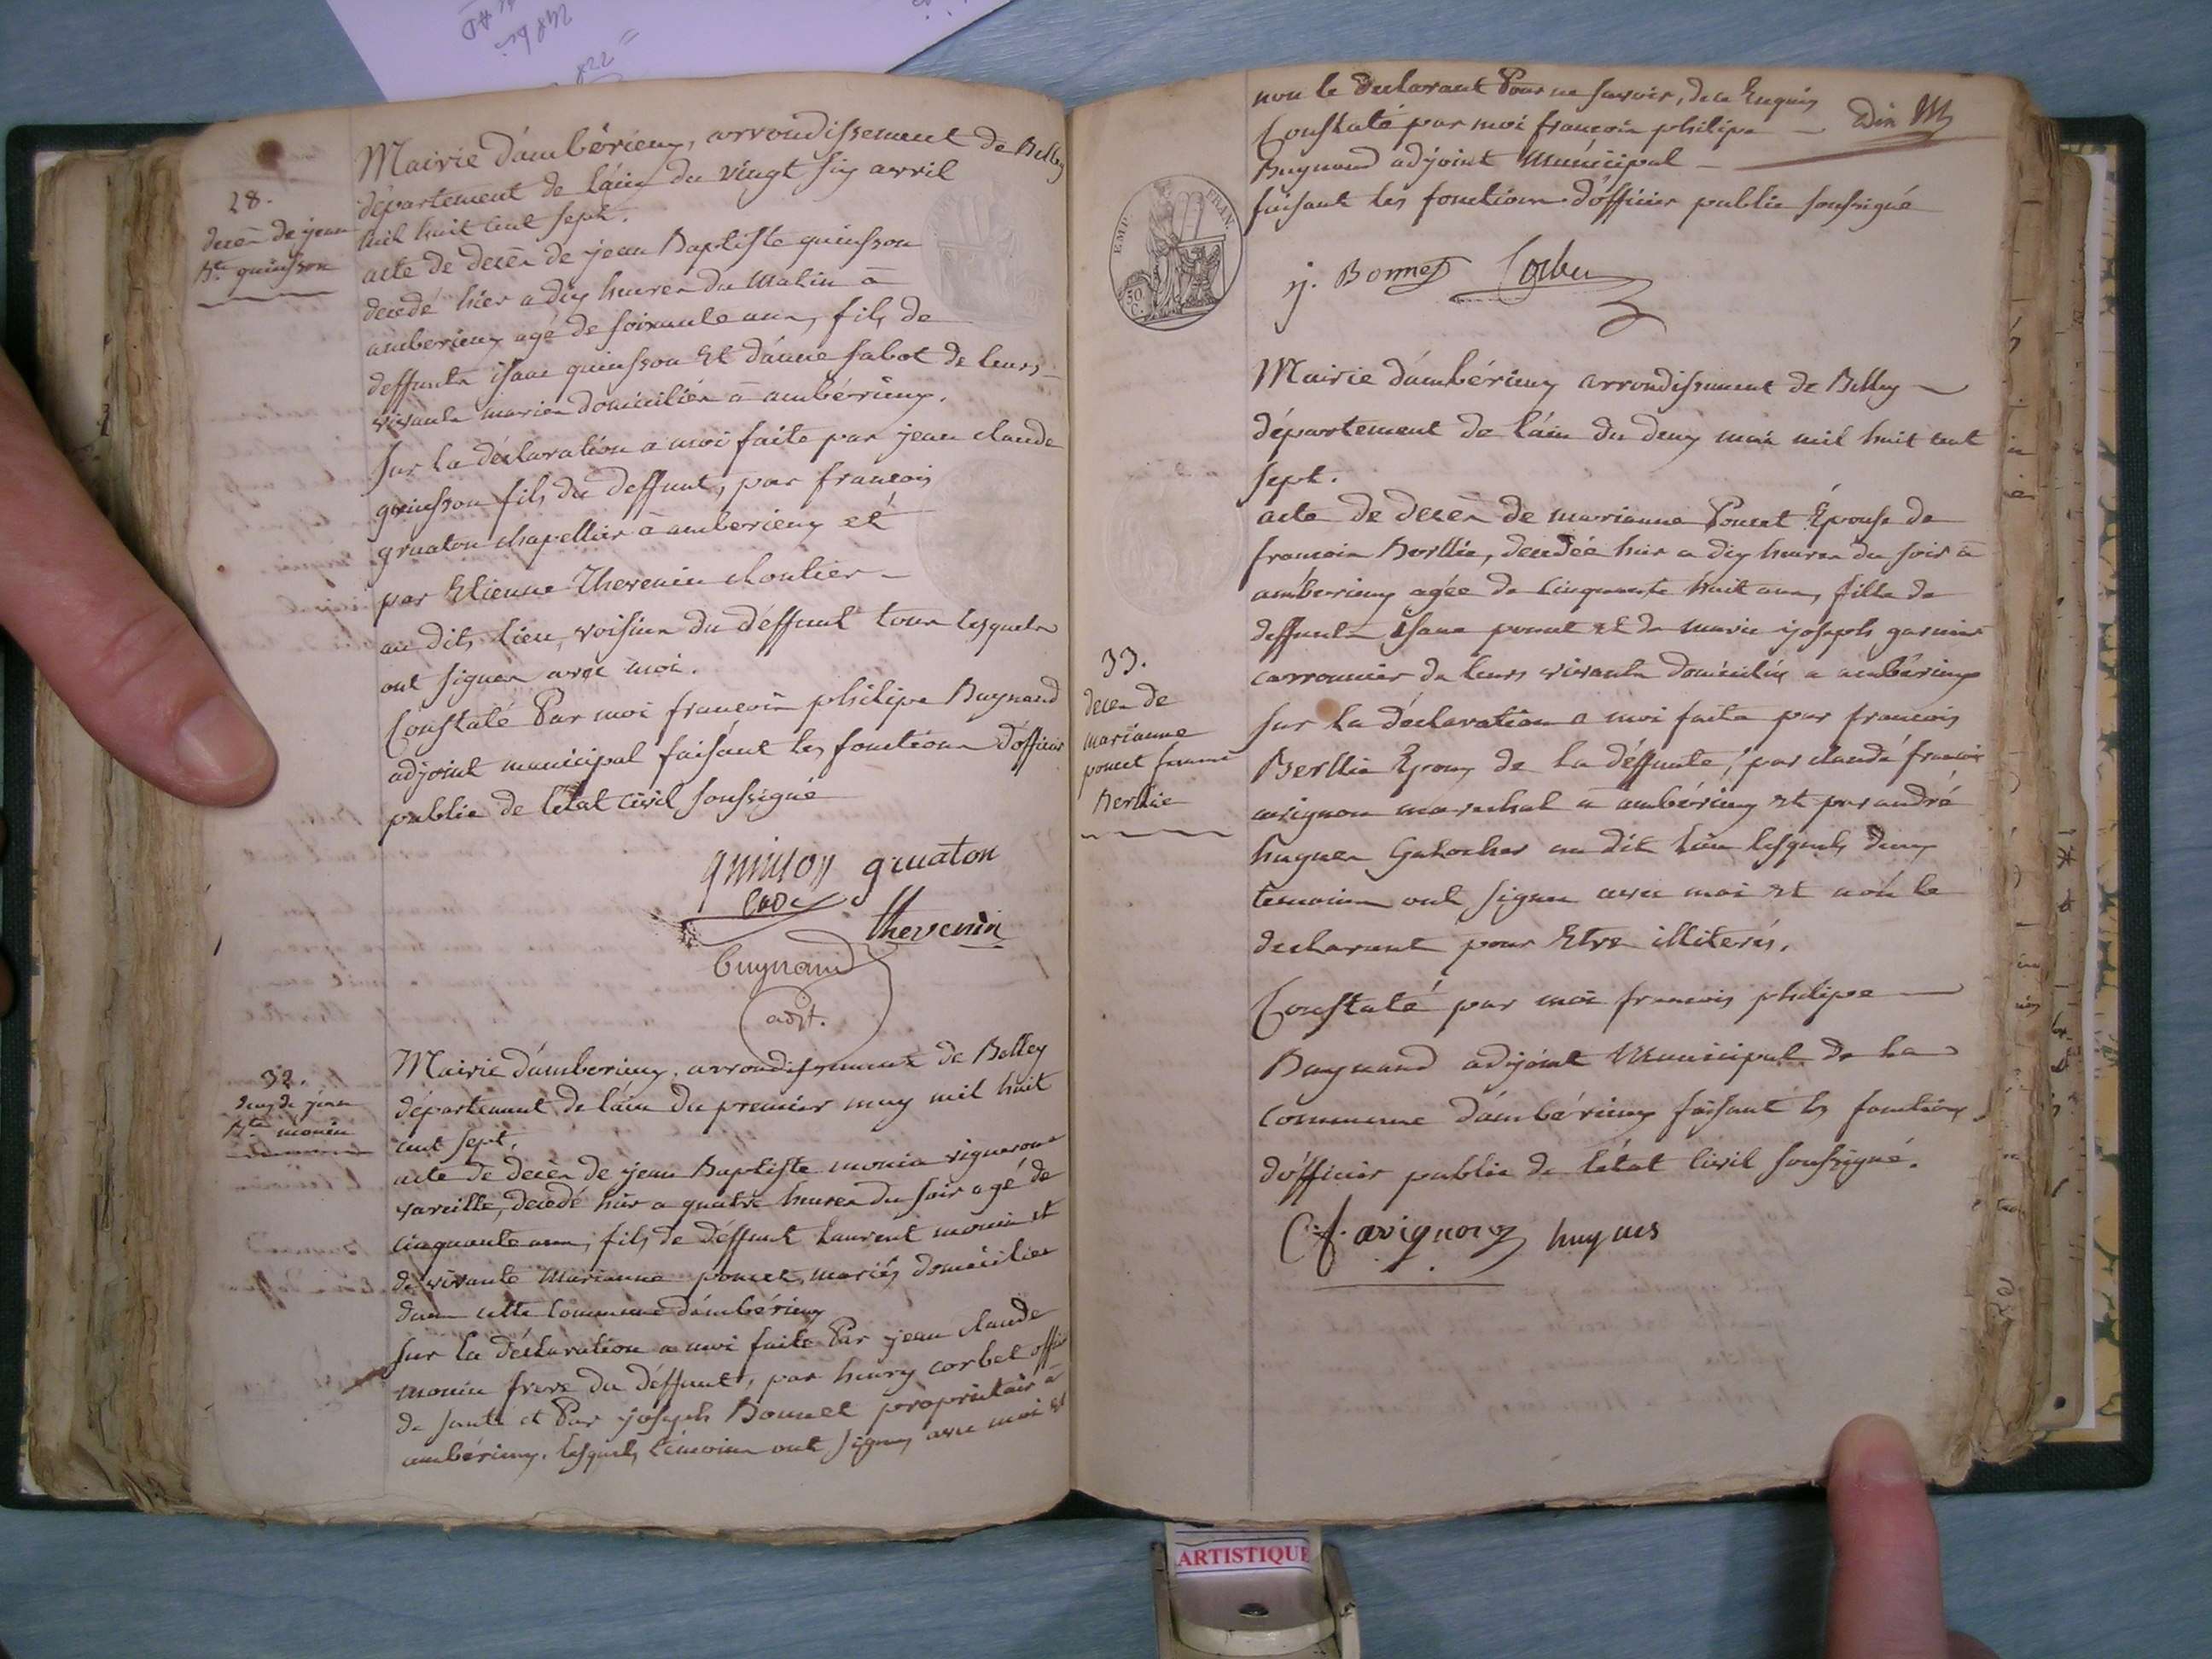 28.
decès de jean
Bte quinsson
Mairie d'ambérieux, arrondissement de Belley
département de l'ain du vingt six avril
mil huit cent sept.
acte de decès de jean Baptiste quinsson
decedé hier a dix heures du matin à
amberieux agé de soixante ans, fils de
deffunts isaac quinsson Et d'anne sabot de leurs
vivants mariés domiciliés à ambérieux.
Sur la déclaration a moi faite par jean claude
quinsson fils du deffunt, par françois
gruaton chapellier à amberieux et
par Etienne Thevenin cloutier
au dit lieu, voisins du déffunt tous lesquels
ont signés avec moi.
Constaté Par moi françois philipe Buynand
adjoint municipal faisant les fonctions d'officier
public de l'état civil soussigné
quinson gruaton
thevenin
buynand
adjt.
32.
decès de jean
Bte monin
Mairie d'amberieux, arrondissement de Belley
département de l'ain du premier may mil huit
cent sept.
acte de decès de jean Baptiste monin vigneron
vareille, decedé hier a quatre heures du soir agé de
cinquante ans, fils de déffunt Laurent monin et
de vivante Marianne poncet, mariés domiciliés
dans cette commune d'ambérieux
Sur la déclaration a moi faite Par jean claude
monin frere du déffunt, par henry corbet officier
de santé et Par joseph Bonnet propriétair a
ambérieux. lesquels témoins ont signés avec moi et
non le declarant Pour ne savoir, de ce Enquis
Constaté par moi françois philipe
Buynand adjoint Municipal
faisant les fonctions d'officier public soussigné
j. Bonnet Corbet
EMP. FRAN.
50 C.
Mairie d'ambérieux arrondissement de Belley
département de l'ain du deux mai mil huit cent
sept.
33.
decès de
marianne
poncet femme
Berllie
acte de decès de marianne Poncet Épouse de
françois Berllie, decedée hier a dix heures du soir à
ambérieux agée de cinquante huit ans, fille de
deffunts isaac poncet et de marie joseph garnier
carronnier de leurs vivants domiciliés a ambérieux
sur la déclaration a moi faite par françois
Berllie Epoux de la déffunte, par claude françois
avignon marechal a ambérieux et par andré
hugues Galocher au dit lieu lesquels deux
temoins ont signés avec moi et non le
declarant pour Etre illiterés.
Constaté par moi françois philipe
Buynand adjoint Municipal de la
commune d'ambérieux faisant les fonctions
d'officier public de l'état Civil soussigné.
C. f. avignon hugues
ARTISTIQUE